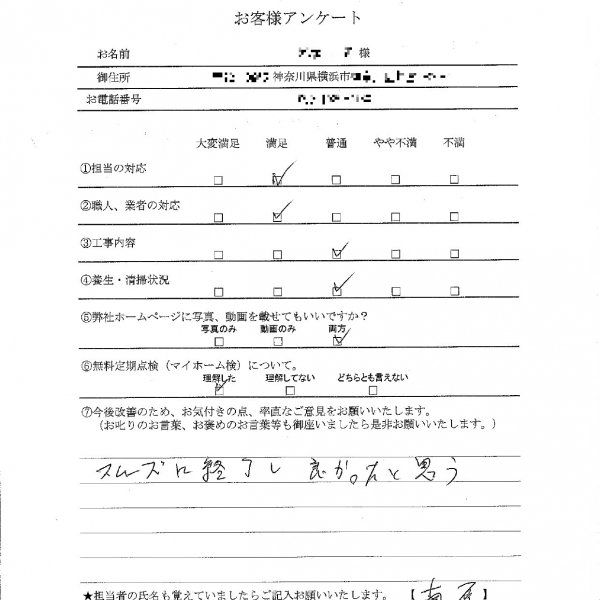 お客様アンケート
お名前 様
御住所 神奈川県横浜市
お電話番号
大変満足 満足 普通 やや不満 不満
①担当の対応 □ ☑ □ □ □
②職人、業者の対応 □ ☑ □ □ □
③工事内容 □ □ ☑ □ □
④養生・清掃状況 □ □ ☑ □ □
⑤弊社ホームページに写真、動画を載せてもいいですか?
写真のみ 動画のみ 両方
□ □ ☑
⑥無料定期点検(マイホーム検)について。
理解した 理解してない どちらとも言えない
☑ □ □
⑦今後改善のため、お気付きの点、率直なご意見をお願いいたします。
(お叱りのお言葉、お褒めのお言葉等も御座いましたら是非お願いいたします。)
スムーズに終了し良かったと思う
★担当者の氏名も覚えていましたらご記入お願いいたします。【 】